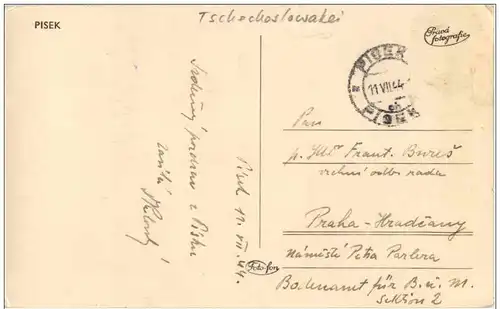 PISEK
Tschechoslowakei
Pravá
fotografie
PÍSEK
11 VII. 44
PISEK
Srdečný pozdrav z Písku
zasílá
Písek 11. VII. 44.
Foto-fon
Pan
p. Frant. Bureš
vrchní odb. rada
Praha-Hradčany
náměstí Petra Parlera
Bodenamt für B. u. M.
Sektion 2